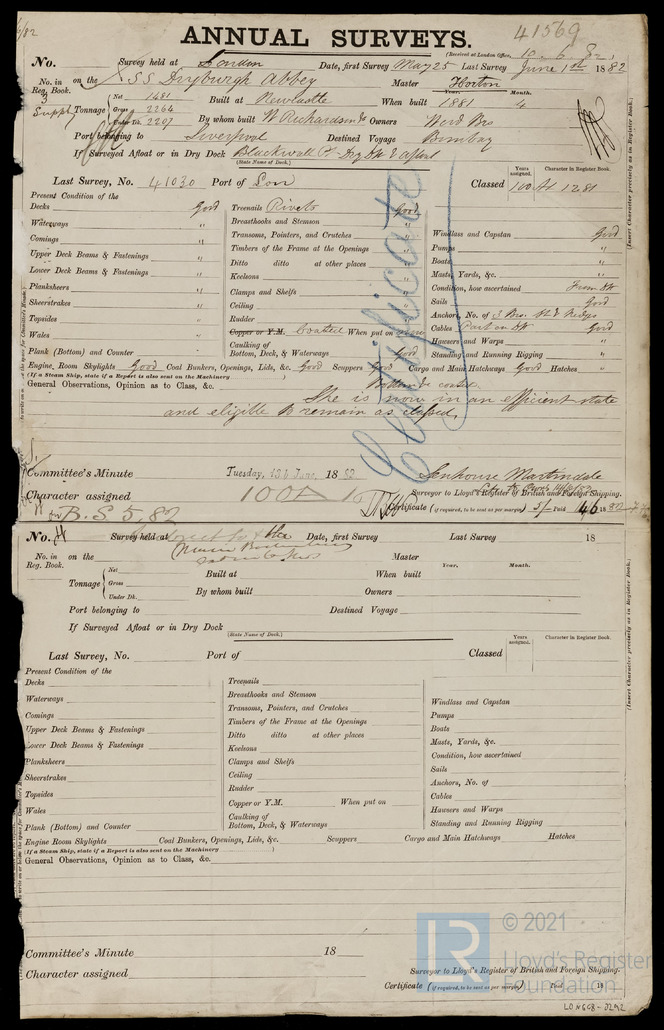 /82
ANNUAL SURVEYS.
41569
(Received at London Office, 10.6.82)
No. Survey held at London Date, first Survey May 25 Last Survey June 1st 1882
No. in Reg. Book. 3 Suppt on the SS Dryburgh Abbey Master Horton
Tonnage Net 1481 Gross 2264 Under Dk. 2207 Built at Newcastle When built Year. 1881 Month. 4
By whom built W Richardson & Owners
Port belonging to Liverpool Destined Voyage Bombay
If Surveyed Afloat or in Dry Dock Blackwall Pt Dry Dk & afloat
(State Name of Dock.)
Last Survey, No. 41030 Port of Lon Classed Years assigned. 100A Character in Register Book. 12 81
(Insert Character precisely as in Register Book.)
Present Condition of the
Decks Good Treenails Rivets Good
Waterways " Breasthooks and Stemson " Windlass and Capstan Good
Comings " Transoms, Pointers, and Crutches " Pumps "
Upper Deck Beams & Fastenings " Timbers of the Frame at the Openings Boats "
Lower Deck Beams & Fastenings " Ditto ditto at other places Masts, Yards, &c. "
Planksheers " Keelsons Condition, how ascertained From Dk
Sheerstrakes " Clamps and Shelfs Sails Good
Topsides " Ceiling Anchors, No. of
Wales " Rudder Cables Part on Dk Good
Plank (Bottom) and Counter " Copper or Y.M. Coated When put on Hawsers and Warps "
Caulking of Bottom, Deck, & Waterways Good Standing and Running Rigging "
Engine Room Skylights Good Coal Bunkers, Openings, Lids, &c. Good Scuppers Good Cargo and Main Hatchways Good Hatches "
(If a Steam Ship, state if a Report is also sent on the Machinery )
General Observations, Opinion as to Class, &c. Bottom coated.
She is now in an efficient state
and eligible to remain as classed.
Certificate
Committee's Minute Tuesday, 13th June, 1882 Senhouse Martindale
Surveyor to Lloyd's Register of British and Foreign Shipping.
Character assigned 100A
Certificate (if required, to be sent as per margin) 5/- Paid 14/6 1882
B.S. 5,82
No. Survey held at Date, first Survey Last Survey 18
No. in Reg. Book. on the Master
Tonnage Net Gross Under Dk. Built at When built Year. Month.
By whom built Owners
Port belonging to Destined Voyage
If Surveyed Afloat or in Dry Dock
(State Name of Dock.)
Last Survey, No. Port of Classed Years assigned. Character in Register Book.
(Insert Character precisely as in Register Book.)
Present Condition of the
Decks Treenails
Waterways Breasthooks and Stemson Windlass and Capstan
Comings Transoms, Pointers, and Crutches Pumps
Upper Deck Beams & Fastenings Timbers of the Frame at the Openings Boats
Lower Deck Beams & Fastenings Ditto ditto at other places Masts, Yards, &c.
Planksheers Keelsons Condition, how ascertained
Sheerstrakes Clamps and Shelfs Sails
Topsides Ceiling Anchors, No. of
Wales Rudder Cables
Plank (Bottom) and Counter Copper or Y.M. When put on Hawsers and Warps
Caulking of Bottom, Deck, & Waterways Standing and Running Rigging
Engine Room Skylights Coal Bunkers, Openings, Lids, &c. Scuppers Cargo and Main Hatchways Hatches
(If a Steam Ship, state if a Report is also sent on the Machinery )
General Observations, Opinion as to Class, &c.
Committee's Minute 18
Character assigned Surveyor to Lloyd's Register of British and Foreign Shipping.
Certificate (if required, to be sent as per margin) Paid 18
LR © 2021
Lloyd's Register
Foundation
LON668-0292